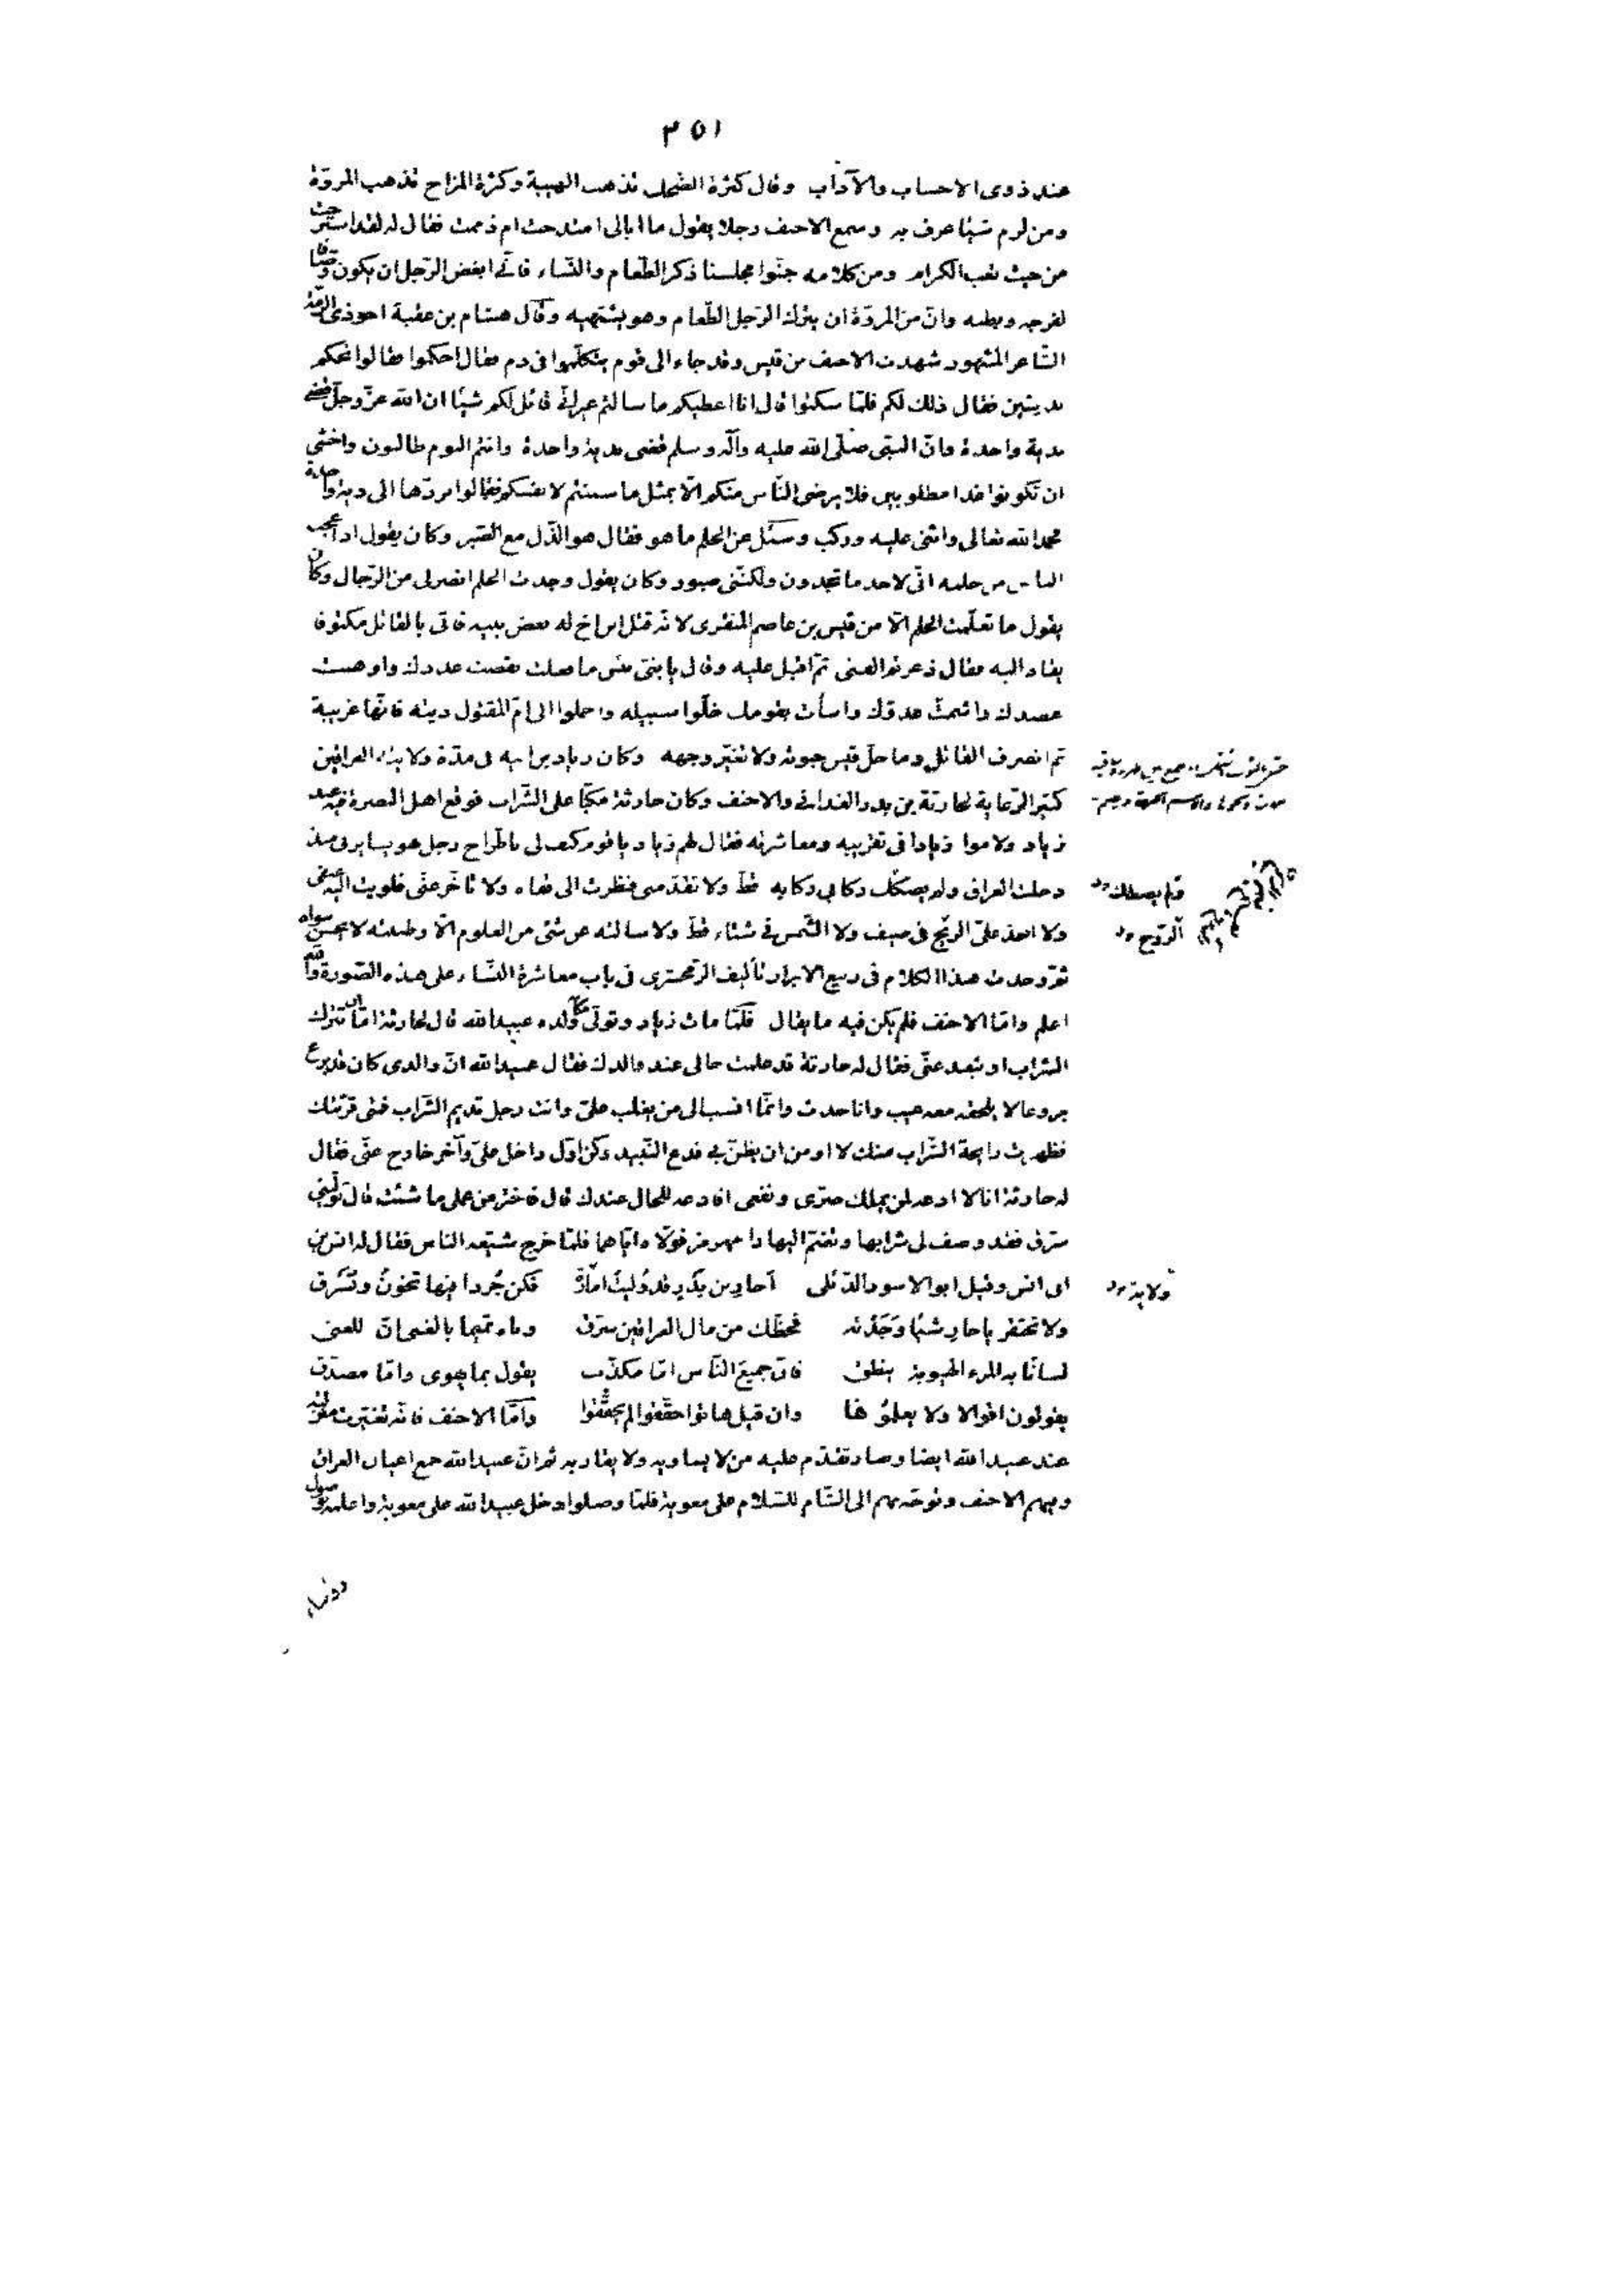 ٣٥١
عند ذوى الاحساب والآداب وقال كثرة الضحك تذهب الهيبة وكثرة المزاح تذهب المروّة
ومن لزم شيئا عرف به وسمع الاحنف رجلا يقول ما ابالى امتدحت ام ذممت فقال له لقد استرحت
من حيث تعب الكرام ومن كلامه جنّبوا مجلسنا ذكر الطّعام والنّساء فانّى ابغض الرّجل ان يكون وصّافا
لفرجه وبطنه وانّ من المروّة ان يترك الرّجل الطّعام وهو يشتهيه وقال هشام بن عقبة اخو ذى الرمّة
الشّاعر المشهور شهدت الاحنف بن قيس وقد جاء الى قوم يتكلّموا فى دم فقال احكموا فقالوا نحكم
بديتين فقال ذلك لكم فلمّا سكتوا قال انا اعطيكم ما سالتم غير انّى قائل لكم شيئا ان الله عزّ وجلّ قضى
بدية واحدة وانّ النبّى صلّى الله عليه وآله وسلم قضى بدية واحدة وانتم اليوم طالبون واخشى
ان تكونوا غدا مطلوبين فلا يرضى النّاس منكم الّا بمثل ما سننتم لانفسكم فقالوا نردّها الى دية واحدة
فحمد الله تعالى واثنى عليه وركب وسئل عن الحلم ما هو فقال هو الذّل مع الصّبر وكان يقول اذا عجب
الناس من حلمه انّى لاجد ما تجدون ولكنّنى صبور وكان يقول وجدت الحلم انصر لى من الرّجال وكان
يقول ما تعلّمت الحلم الّا من قيس بن عاصم المنقرى لانّه قتل ابن اخ له بعض بنيه فاتى بالقاتل مكتوفا
يقاد اليه فقال ذعرتم الفتى ثمّ اقبل عليه وقال يا بنىّ بئس ما فعلت نقصت عددك واوهنت
عضدك واشمتّ عدوّك واسأت بقومك خلّوا سبيله واحملوا الى امّ المقتول ديته فانّها غريبة
ثم انصرف القاتل وما حلّ قيس حبوته ولا تغيّر وجهه وكان زياد بن ابيه فى مدّة ولايته العراقين
كثير الرّعاية لحارثة بن بدر الغدانى والاحنف وكان حارثة مكبّا على الشّراب فوقع اهل البصرة فيه عند
زياد ولاموا زيادا فى تقريبه ومعاشرته فقال لهم زياد يا قوم كيف لى باطّراح رجل هو يسايرنى منذ
دخلت العراق ولم يصكك ركابى ركابه قطّ ولا تقدّمنى فنظرت الى قفاه ولا تأخّر عنّى فلويت اليه عنقى
ولا اخذ علىّ الرّيح فى صيف ولا الشّمس فى شتاء قطّ ولا سالته عن شئ من العلوم الّا وظننته لا يحسن سواه
ثمّ وجدت هذا الكلام فى ربيع الابرار تأليف الزمخشرى فى باب معاشرة النّساء على هذه الصّورة والله
اعلم وامّا الاحنف فلم يكن فيه ما يقال فلمّا مات زياد وتولّى مكانه ولده عبيدالله قال لحارثة امّا ان تترك
الشّراب او تبعد عنّى فقال له حارثة قد علمت حالى عند والدك فقال عبيدالله انّ والدى كان قد برع
بروعا لا يلحقه معه عيب وانا حدث وانّما انسب الى من يغلب علىّ وانت رجل تديم الشّراب فمتى قرّبتك
فظهرت رايحة الشّراب منك لا اومن ان يظنّ بى فدع النّبيذ وكن اوّل داخل علىّ وآخر خارج عنّى فقال
له حارثة انا لا ادعه لمن يملك ضرّى ونفعى افادعه للحال عندك قال فاختر من عملى ما شئت قال تولّينى
سرّق فقد وصف لى شرابها وتضمّ اليها رامهرمز فولّاه ايّاهما فلمّا خرج شيّعه الناس فقال له انس بن
ابى انس وقيل ابو الاسود الدّئلى أحارِ بن بَدْرٍ قد وُلّيتَ امارةً فكن جُرذا فيها تخونُ وتَسْرِق
ولا تحتقر يا حارِ شيئا وَجَدْتَه فحظّك من مال العراقين سرّق وباه تميما بالغنى انّ للغنى
لسانا به المرء الهيوبة ينطق فانّ جميع النّاس امّا مكذّب يقول بما يهوى وامّا مصدّق
يقولون اقوالا ولا يعلمُونها وان قيل هاتوا حقّقوا لم يحقّقوا وامّا الاحنف فانّه تغيّرت منزلته
عند عبيدالله ايضا وصار يقدّم عليه من لا يساويه ولا يقاربه ثم انّ عبيدالله جمع اعيان العراق
وفيهم الاحنف وتوجّه بهم الى الشّام للسّلام على معوية فلمّا وصلوا دخل عبيدالله على معوية واعلمه بوصول
ولم يصطك
الرّوح
ولاية
رؤساء